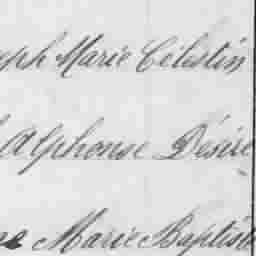 eph Marie Célestin
Alphonse Désiré
Marie Baptist